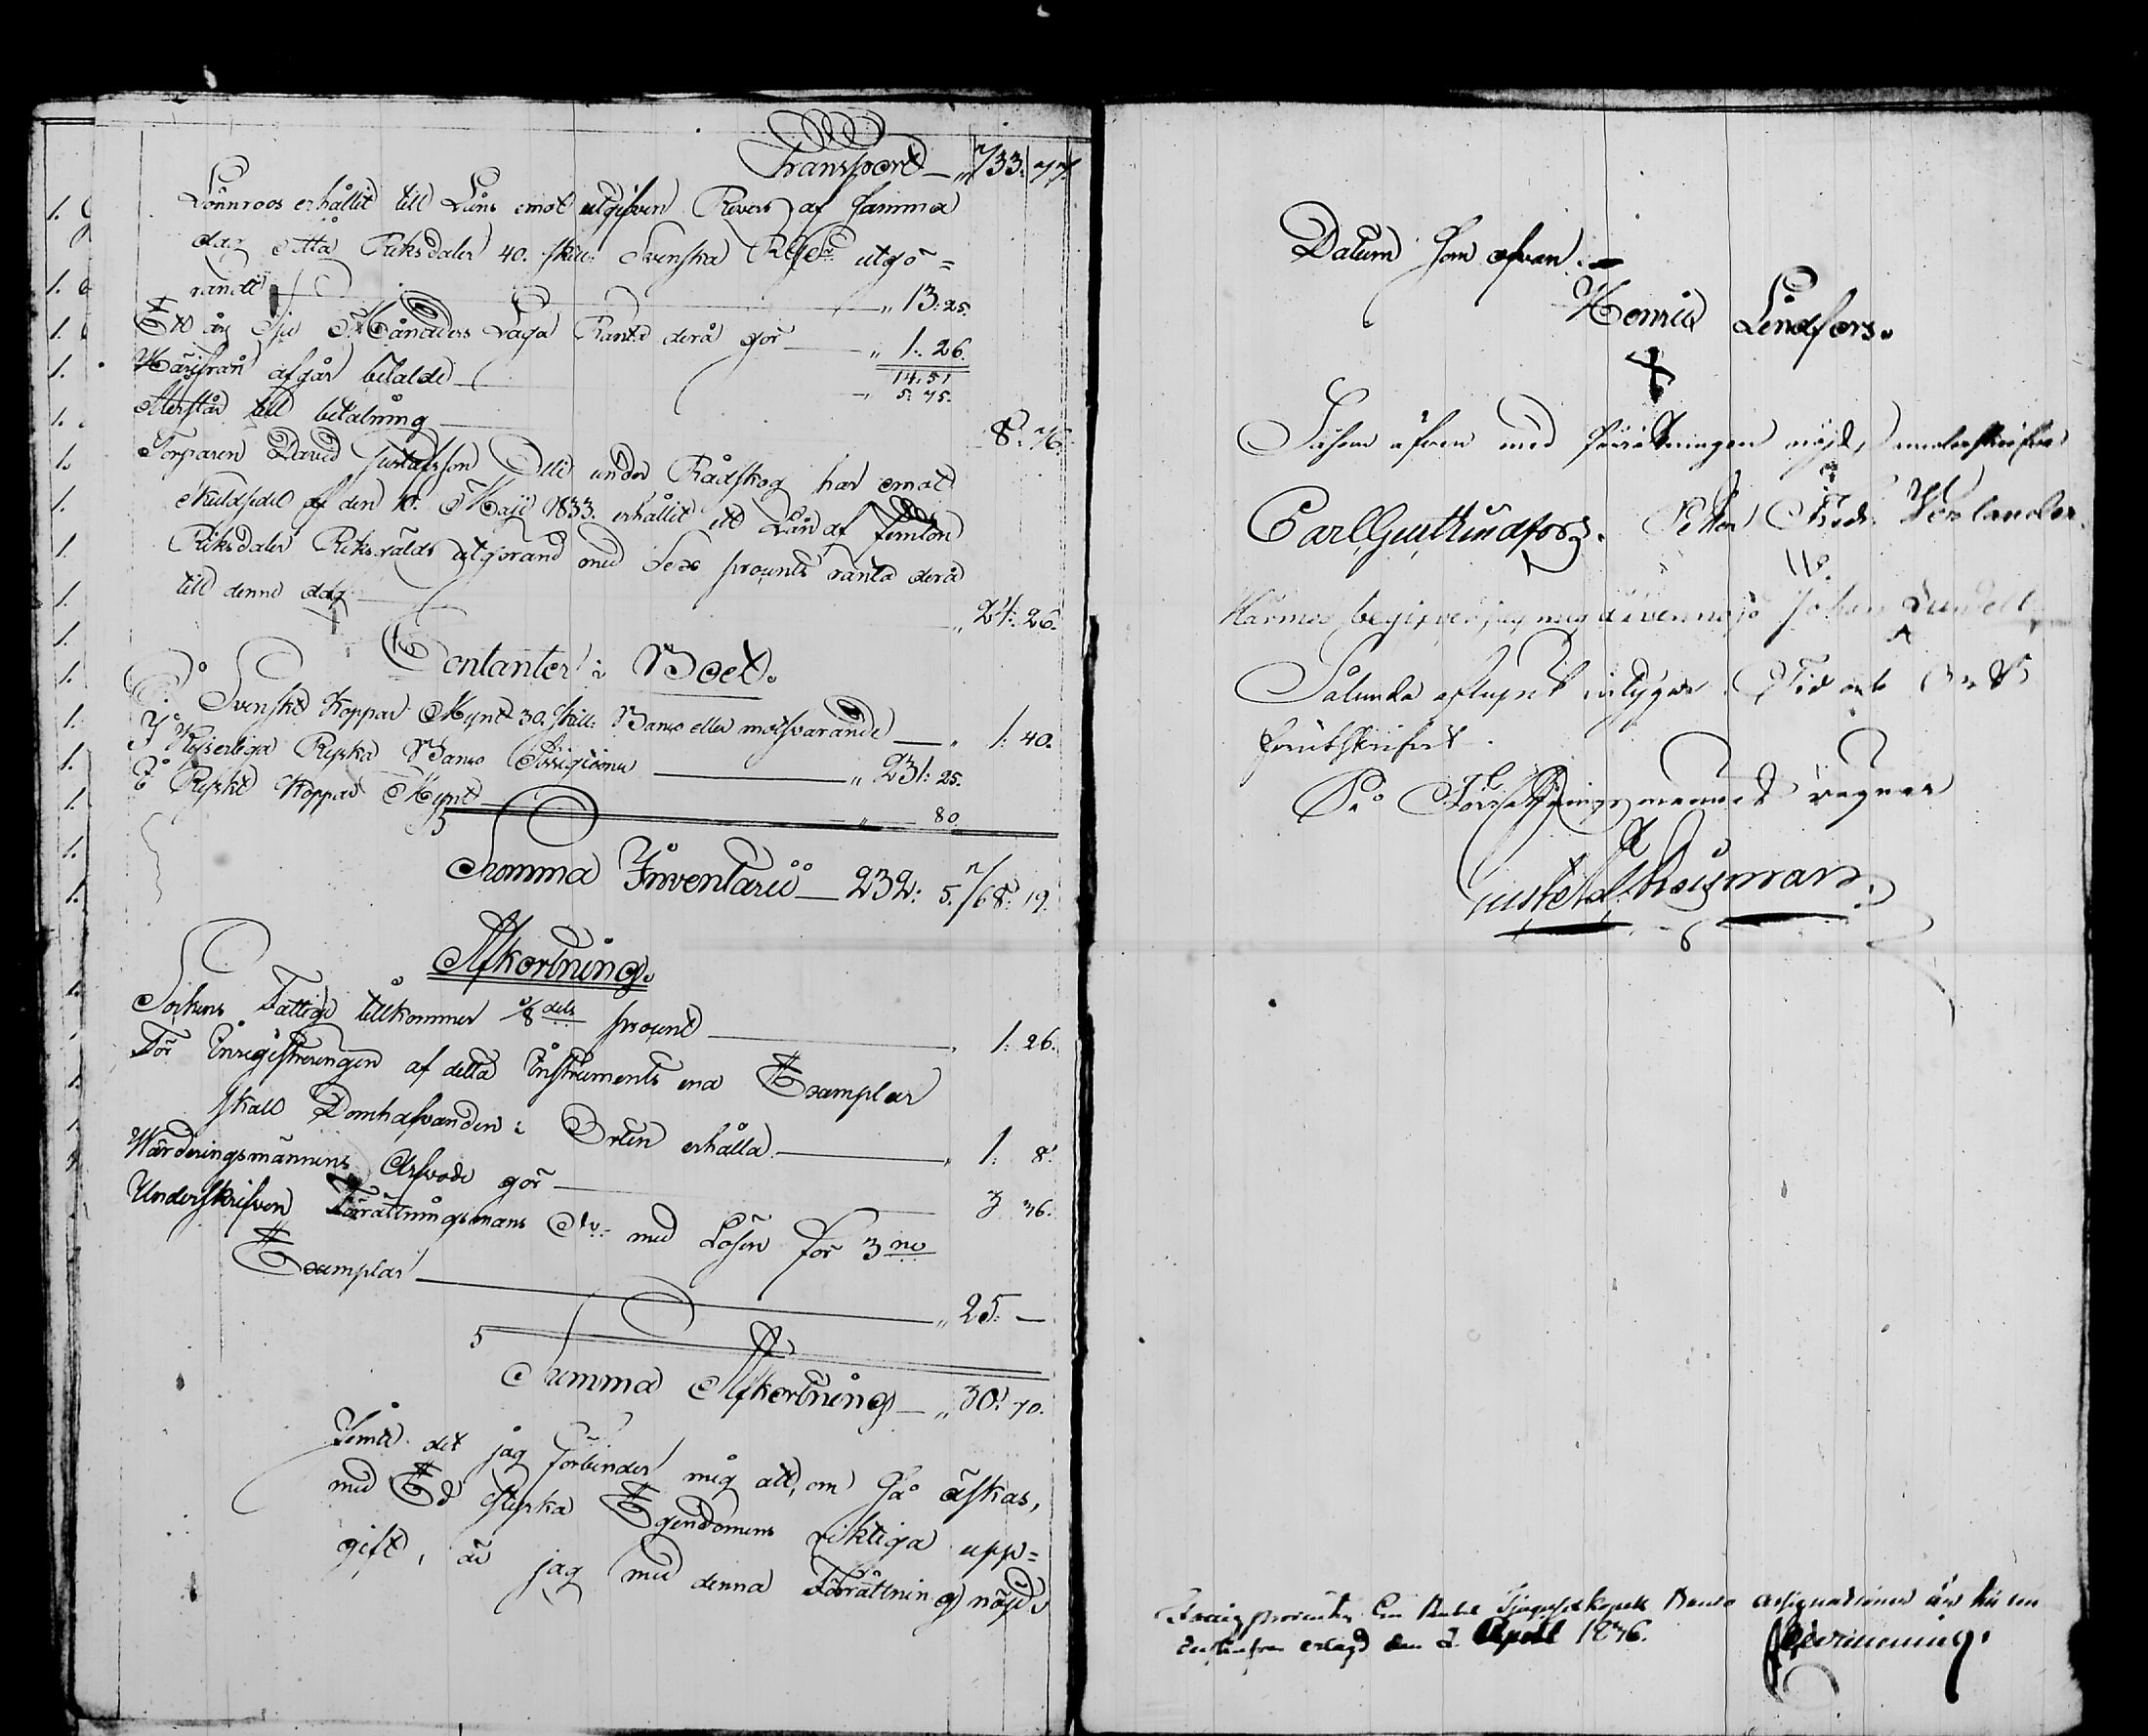 Transport — „ 733: 77.
Lönnroos erhållit till Låns emot utgifven Revers af samma
dag otta Riksdaler 40. skill: Svenska utgö=
randt — „ 13: 25.
Ett års Månaders Laga Ränta derå gör — „ 1: 26.
14: 51
Härifrån afgår betaldt — „ 5: 75.
Återstår till betalning — 8: 76.
Torparen David Gustafsson under Rådskog har emot
skuldsedel af den 10. Maji 1833. erhållit ett Lån af femton
Riksdaler Riksgälds utgörand med Sex prosents ranta derå
till denne dag — „ 24: 26.
Contanter i Boet.
I Svenskt Koppar Mynt 30. skill: Banco eller motsvarande — „ 1: 40.
I Kejserliga Ryska Banco Assignationer — „ 231: 25.
I Ryskt Koppar Mynt — „ 80.
Summa Inventarii — 232: 5. 768: 19.
Afkortning.
Sockens Fattige tillkommer 1/8 dels prosent — „ 1: 26.
För Inregistreringen af detta Instruments ena Exemplar
skall Domhafvanden i Orten erhålla — „ 1: 8.
Värderingsmännens Arfvode gör — 3 36.
Underskrifven Förrättningsmans d:o med Lösen för 3 ne
Exemplar — „ 25. —
Summa Afkortning — „ 30: 70.
Jemte det jag förbinder mig att, om så äskas,
med Ed styrka Egendomens riktiga upp=
gift, är jag med denna Förrättning nöjd.
Datum som ofvan. —
Henric Lindfors.
Såsom äfven med förrättningen nöjd, underskrifver
Carl Gust Lindfors. Petter Fredr.
Härmed begifver jag mig äfven nöjd Johan Lundell
Sålunda aflupet intygar Tid och Ort
förutskrifvet.
På Förrättningsmannens vägnar
Gustaf
April 1836.